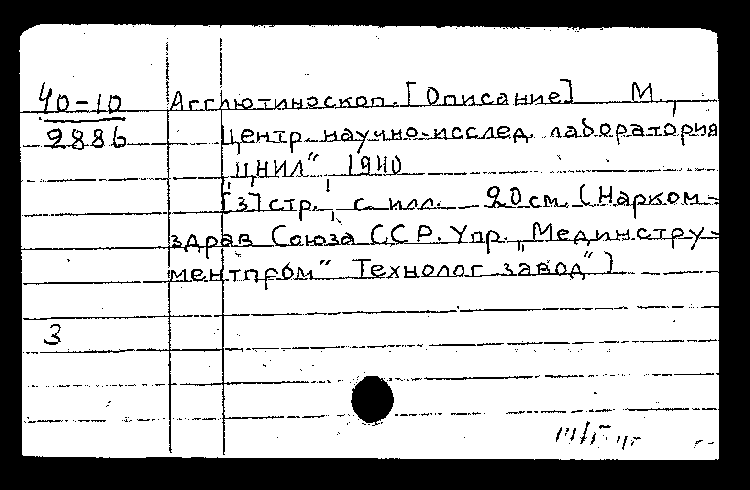 40-10 Агглютиноскоп. [Описание] М.,
2886 Центр. научно-исслед. лаборатория
"ЦНИЛ" 1940
[3] стр., с илл. 20 см. (Нарком-
здрав Союза ССР. Упр. „Мединстру-
ментпром" Технолог завод")
3